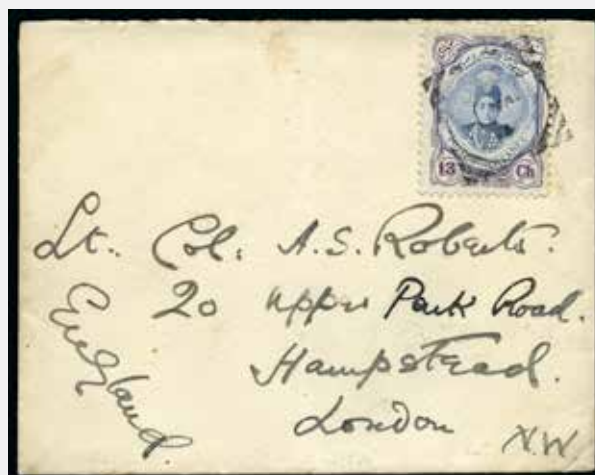 13 Ch
Lt. Col. A.S. Roberts.
20 Upper Park Road.
Hampstead.
London N.W.
England.